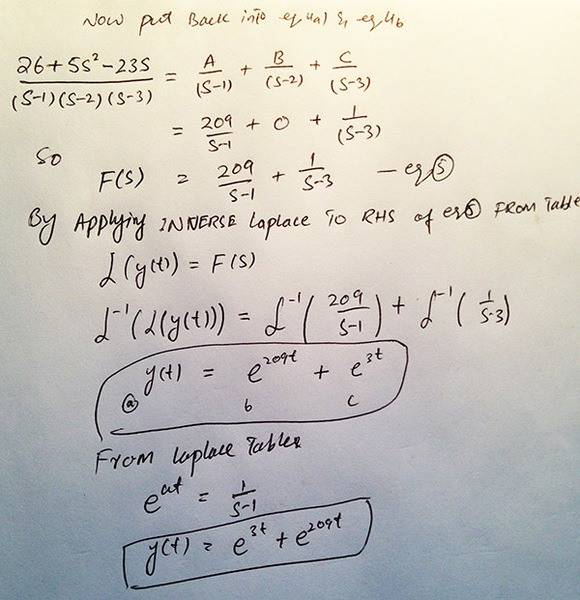 Now put Back into eq 4a) & eq 4b
26+5s²-23s / (s-1)(s-2)(s-3) = A/(s-1) + B/(s-2) + C/(s-3)
= 209/s-1 + 0 + 1/(s-3)
So
F(s) = 209/s-1 + 1/s-3 — eq⑤
By Applying INNERSE Laplace To RHS of eq⑤ FROM Table
ℒ(y(t)) = F(s)
ℒ⁻¹(ℒ(y(t))) = ℒ⁻¹(209/s-1) + ℒ⁻¹(1/s-3)
y(t) = e^209t + e^3t
ⓐ b c
From Laplace Tables
e^at = 1/s-1
y(t) = e^3t + e^209t